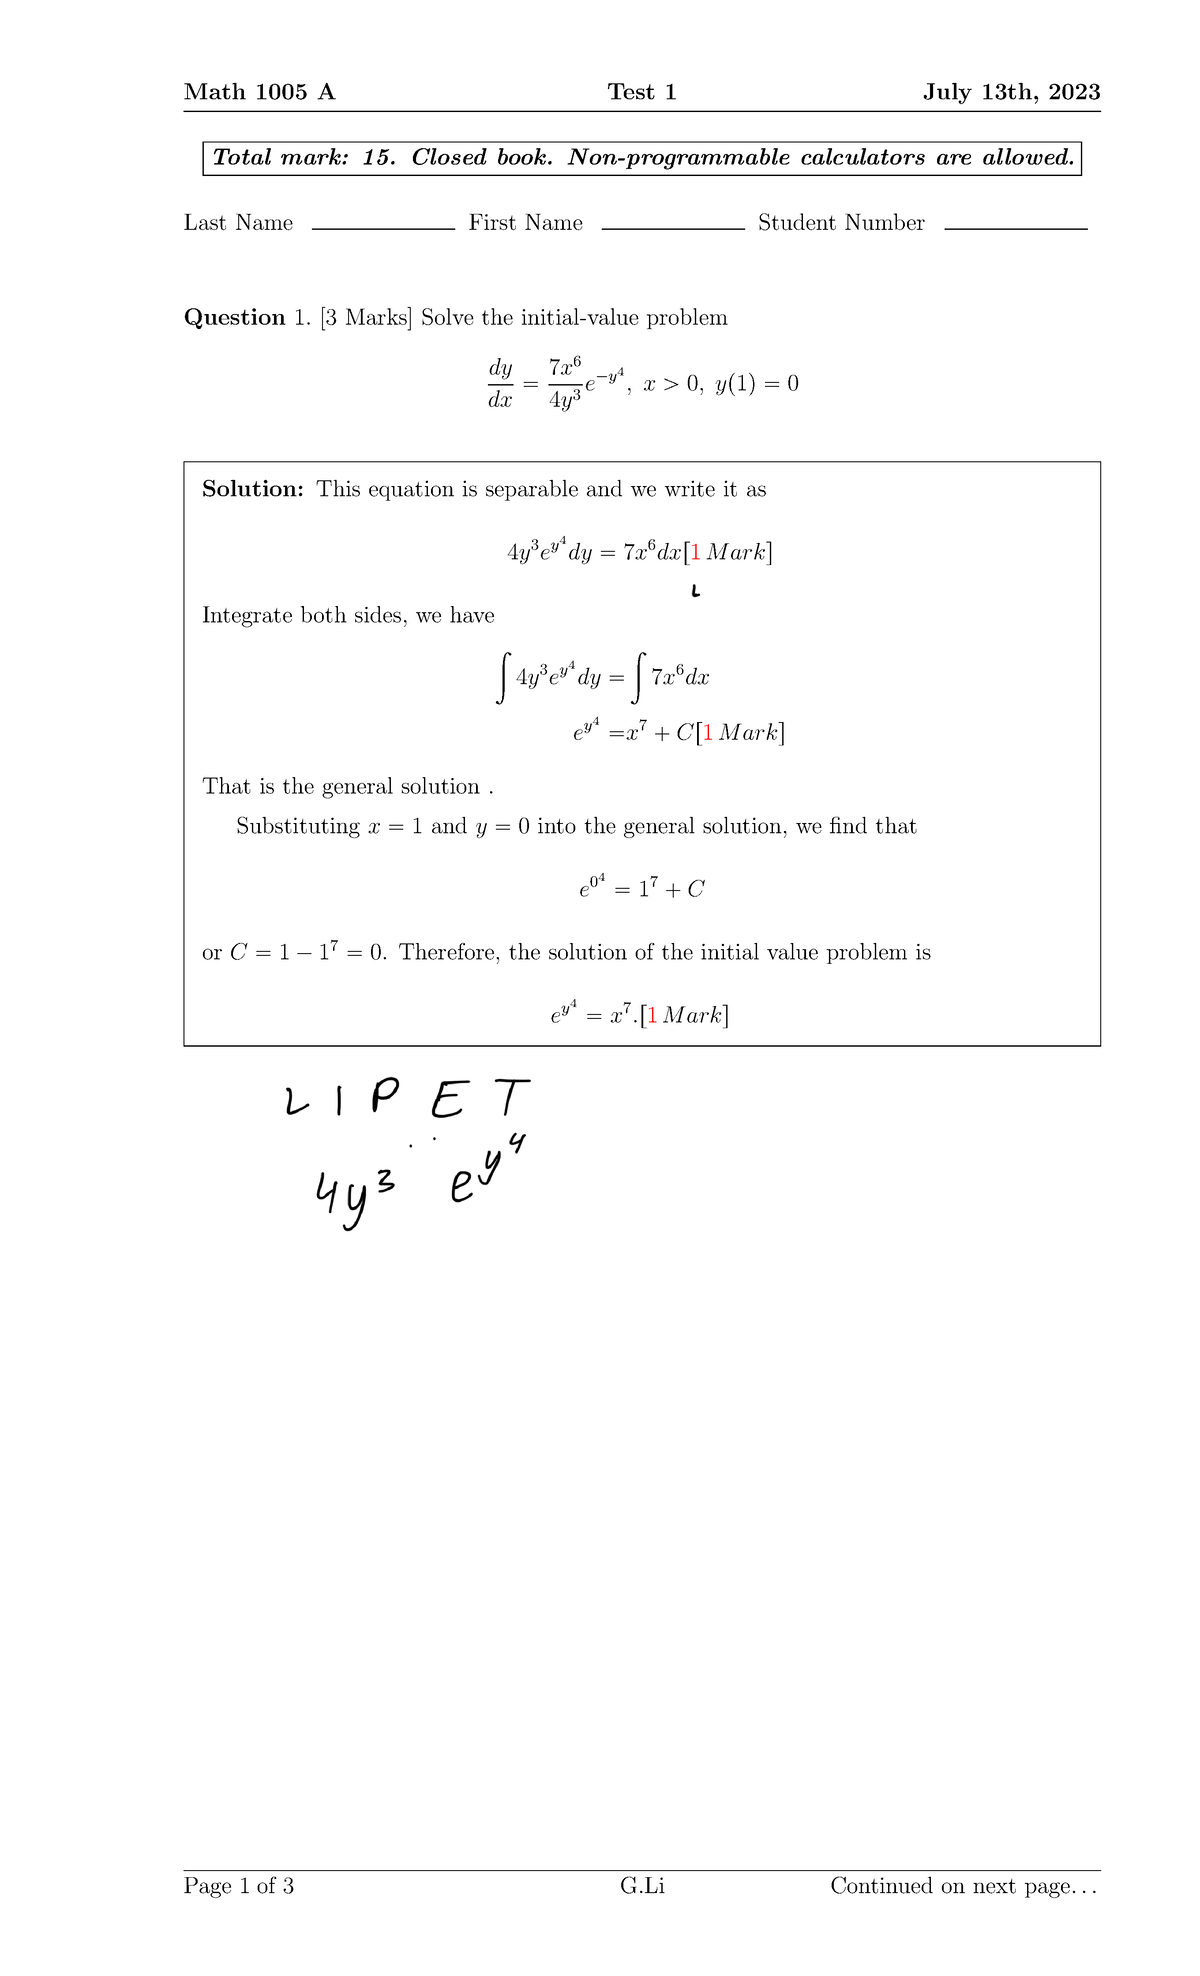 Math 1005 A Test 1 July 13th, 2023
Total mark: 15. Closed book. Non-programmable calculators are allowed.
Last Name First Name Student Number
Question 1. [3 Marks] Solve the initial-value problem
dy/dx = 7x⁶/4y³ e^{−y⁴}, x > 0, y(1) = 0
Solution: This equation is separable and we write it as
4y³e^{y⁴}dy = 7x⁶dx[1 Mark]
L
Integrate both sides, we have
∫ 4y³e^{y⁴}dy = ∫ 7x⁶dx
e^{y⁴} =x⁷ + C[1 Mark]
That is the general solution .
Substituting x = 1 and y = 0 into the general solution, we find that
e^{0⁴} = 1⁷ + C
or C = 1 − 1⁷ = 0. Therefore, the solution of the initial value problem is
e^{y⁴} = x⁷.[1 Mark]
L I P E T
4y³ e^{y⁴}
Page 1 of 3 G.Li Continued on next page...